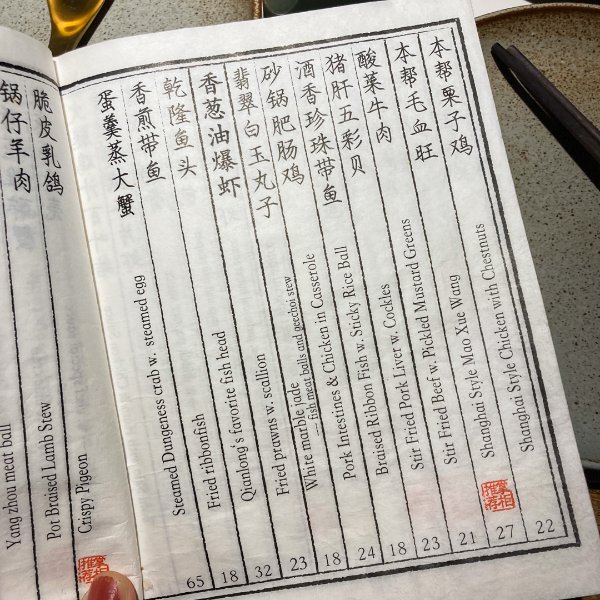 本帮栗子鸡
Shanghai Style Chicken with Chestnuts
22
本帮毛血旺
Shanghai Style Mao Xue Wang
27
酸菜牛肉
Stir Fried Beef w. Pickled Mustard Greens
21
猪肝五彩贝
Stir Fried Pork Liver w. Cockles
23
酒香珍珠带鱼
Braised Ribbon Fish w. Sticky Rice Ball
18
砂锅肥肠鸡
Pork Intestines & Chicken in Casserole
24
翡翠白玉丸子
White marble jade
— fish meat balls and geechoi stew
18
香葱油爆虾
Fried prawns w. scallion
23
乾隆鱼头
Qianlong's favorite fish head
32
香煎带鱼
Fried ribbonfish
18
蛋羹蒸大蟹
Steamed Dungeness crab w. steamed egg
65
脆皮乳鸽
Crispy Pigeon
锅仔羊肉
Pot Braised Lamb Stew
Yang zhou meat ball